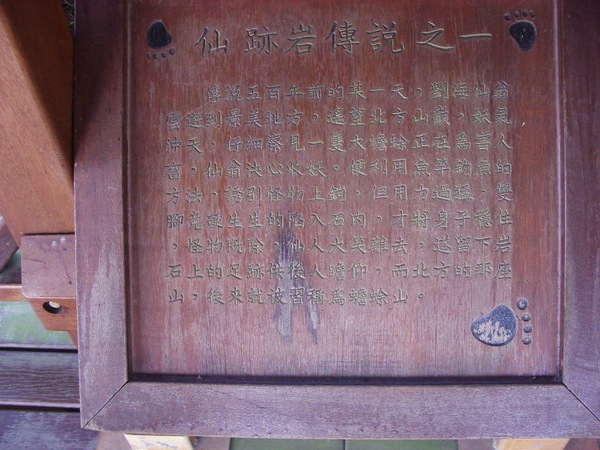 仙跡岩傳說之一
傳說五百年前的某一天，劉海仙翁
雲遊到景美地方，遙望北方山巖，妖氣
沖天，仔細察見一雙大蟾蜍正在為害人
畜，仙翁決心收妖。便利用魚竿釣魚的
方法，誘引怪物上鉤，但用力過猛，雙
腳竟硬生生的陷入石內，才將身子穩住
。怪物既除，仙人大笑離去，這留下岩
石上的足跡供後人瞻仰，而北方的那座
山後來就被習稱為蟾蜍山。